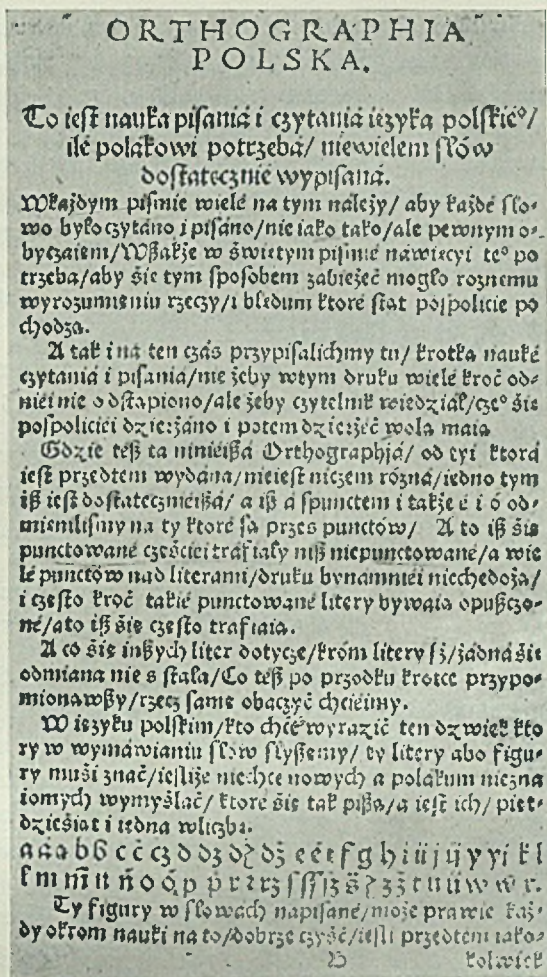 ORTHOGRAPHIA
POLSKA.
To ieſt nauká piſaniá i czytaniá ięzyká polſkiéº/
ilé polakowi potrzebá/ niewielem ſłów
doſtatecznié wypiſaná.
Wkażdym piſmie wielé na tym należy/ aby każdé ſło⸗
wo było czytáno i piſáno/nie iáko táko/ale pewnym o⸗
byczaiem/Wßakże w świętym piſmié nawięcyi teº po
trzebá/aby śie tym ſpoſobem zabieżeć mogło roznemu
wyrozumieniu rzeczy/i błędum ktoré ſtąt poſpolicie po
chodzą.
A ták i ná ten czás przypiſalichmy tu/ krotką naukę
czytániá i piſaniá/nie żeby wtym druku wielé kroć od⸗
niéi nie odſtąpiono/ale żeby czytelnik wiedział/czeº śie
poſpoliciéi dzierżáno i potem dzierżeć wolą maią
Gdzie téß ta ninieißá Orthographią/ od tyi którá
ieſt przedtém wydána/nieieſt niczém różná/iedno tym
iß ieſt doſtateczniéißá/ a iß á ſpunctem i także é i ó od⸗
mieniliſmy na ty ktoré ſą przes punctów/ A to iß śie
punctowané częściéi trafiały niß niepunctowané/a wie
lé punctów nad literami/druku bynamniéi niechędożą/
i często kroć takié punctowané litery bywaią opußczo⸗
né/áto iß śie często trafiaią.
A co śie inßych liter dotycze/króm litery ſż/żadná śie
odmianá nie sſtała/Co téß po przodku krotce przypo⸗
mionawßy/rzecz samę obaczyć chciéimy.
W ięzyku polſkim/kto chce wyrazić ten dzwięk kto
ry w wymáwianiu ſłów ſłyßemy/ ty litery abo figu⸗
ry muśi znáć/ieſliże niechce nowych a polakum niezna
iomych wymyślać/ ktoré śie ták pißą/a ieſt ich/ pięt⸗
dzieśiąt i iedná wliczbie.
Ty figury w ſłowach napiſané/może práwie każ⸗
dy okrom nauki ná to/dobrze czyść/ieſli przedtém iako⸗
B kolwiek